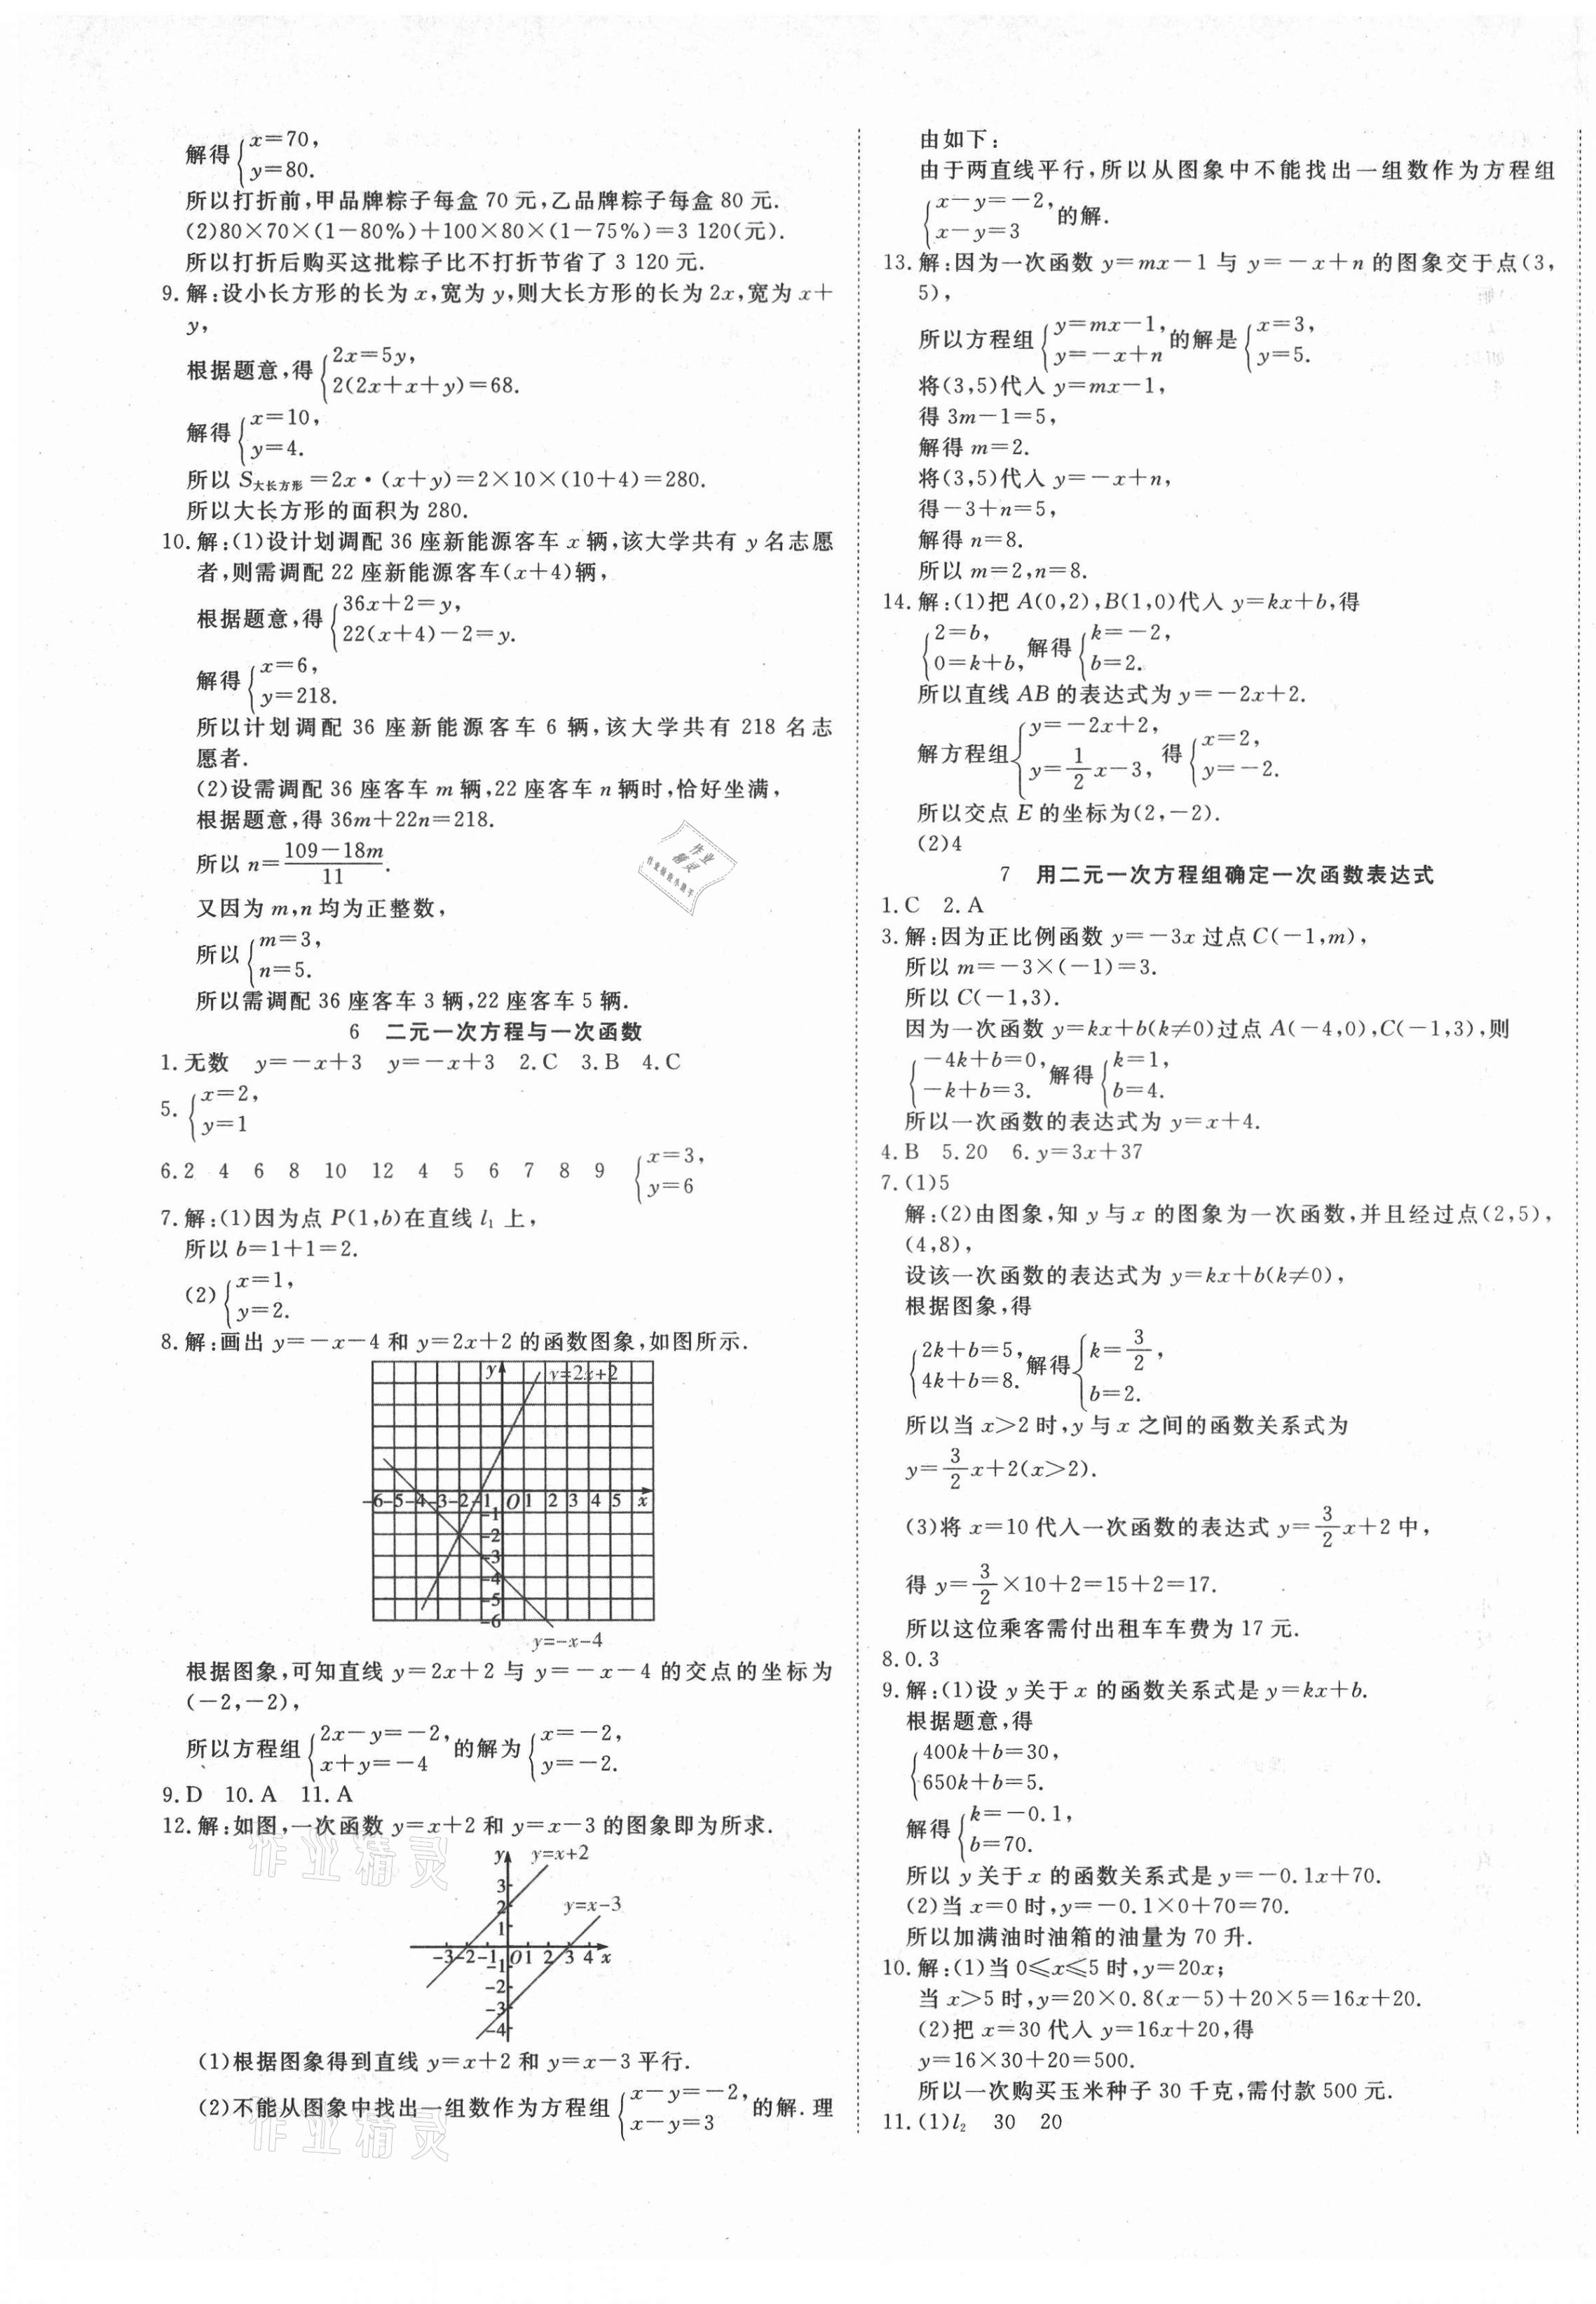 解得{x=70,
y=80.
所以打折前,甲品牌粽子每盒 70 元,乙品牌粽子每盒 80 元.
(2)80×70×(1-80%)+100×80×(1-75%)=3 120(元).
所以打折后购买这批粽子比不打折节省了 3 120 元.
9.解:设小长方形的长为 x,宽为 y,则大长方形的长为 2x,宽为 x+
y,
根据题意,得{2x=5y,
2(2x+x+y)=68.
解得{x=10,
y=4.
所以 S大长方形=2x·(x+y)=2×10×(10+4)=280.
所以大长方形的面积为 280.
10.解:(1)设计划调配 36 座新能源客车 x 辆,该大学共有 y 名志愿
者,则需调配 22 座新能源客车(x+4)辆,
根据题意,得{36x+2=y,
22(x+4)-2=y.
解得{x=6,
y=218.
所以计划调配 36 座新能源客车 6 辆,该大学共有 218 名志
愿者.
(2)设需调配 36 座客车 m 辆,22 座客车 n 辆时,恰好坐满,
根据题意,得 36m+22n=218.
所以 n=(109-18m)/11.
又因为 m,n 均为正整数,
所以{m=3,
n=5.
所以需调配 36 座客车 3 辆,22 座客车 5 辆.
6 二元一次方程与一次函数
1.无数 y=-x+3 y=-x+3 2.C 3.B 4.C
5.{x=2,
y=1
6.2 4 6 8 10 12 4 5 6 7 8 9 {x=3,
y=6
7.解:(1)因为点 P(1,b)在直线 l₁ 上,
所以 b=1+1=2.
(2){x=1,
y=2.
8.解:画出 y=-x-4 和 y=2x+2 的函数图象,如图所示.
y y=2x+2
-6-5-4-3-2-1 O 1 2 3 4 5 x
-1
-2
-3
-4
-5
-6
y=-x-4
根据图象,可知直线 y=2x+2 与 y=-x-4 的交点的坐标为
(-2,-2),
所以方程组{2x-y=-2,
x+y=-4 的解为{x=-2,
y=-2.
9.D 10.A 11.A
12.解:如图,一次函数 y=x+2 和 y=x-3 的图象即为所求.
y y=x+2
3
2
y=x-3
1
-3-2-1 O 1 2 3 4 x
-1
-2
-3
-4
(1)根据图象得到直线 y=x+2 和 y=x-3 平行.
(2)不能从图象中找出一组数作为方程组{x-y=-2,
x-y=3 的解.理
由如下:
由于两直线平行,所以从图象中不能找出一组数作为方程组
{x-y=-2,
x-y=3 的解.
13.解:因为一次函数 y=mx-1 与 y=-x+n 的图象交于点(3,
5),
所以方程组{y=mx-1,
y=-x+n 的解是{x=3,
y=5.
将(3,5)代入 y=mx-1,
得 3m-1=5,
解得 m=2.
将(3,5)代入 y=-x+n,
得-3+n=5,
解得 n=8.
所以 m=2,n=8.
14.解:(1)把 A(0,2),B(1,0)代入 y=kx+b,得
{2=b,
0=k+b, 解得{k=-2,
b=2.
所以直线 AB 的表达式为 y=-2x+2.
解方程组{y=-2x+2,
y=1/2x-3, 得{x=2,
y=-2.
所以交点 E 的坐标为(2,-2).
(2)4
7 用二元一次方程组确定一次函数表达式
1.C 2.A
3.解:因为正比例函数 y=-3x 过点 C(-1,m),
所以 m=-3×(-1)=3.
所以 C(-1,3).
因为一次函数 y=kx+b(k≠0)过点 A(-4,0),C(-1,3),则
{-4k+b=0,
-k+b=3. 解得{k=1,
b=4.
所以一次函数的表达式为 y=x+4.
4.B 5.20 6.y=3x+37
7.(1)5
解:(2)由图象,知 y 与 x 的图象为一次函数,并且经过点(2,5),
(4,8),
设该一次函数的表达式为 y=kx+b(k≠0),
根据图象,得
{2k+b=5,
4k+b=8. 解得{k=3/2,
b=2.
所以当 x>2 时,y 与 x 之间的函数关系式为
y=3/2x+2(x>2).
(3)将 x=10 代入一次函数的表达式 y=3/2x+2 中,
得 y=3/2×10+2=15+2=17.
所以这位乘客需付出租车车费为 17 元.
8.0.3
9.解:(1)设 y 关于 x 的函数关系式是 y=kx+b.
根据题意,得
{400k+b=30,
650k+b=5.
解得{k=-0.1,
b=70.
所以 y 关于 x 的函数关系式是 y=-0.1x+70.
(2)当 x=0 时,y=-0.1×0+70=70.
所以加满油时油箱的油量为 70 升.
10.解:(1)当 0≤x≤5 时,y=20x;
当 x>5 时,y=20×0.8(x-5)+20×5=16x+20.
(2)把 x=30 代入 y=16x+20,得
y=16×30+20=500.
所以一次购买玉米种子 30 千克,需付款 500 元.
11.(1)l₂ 30 20
作业
精灵
作业精灵
作业精灵